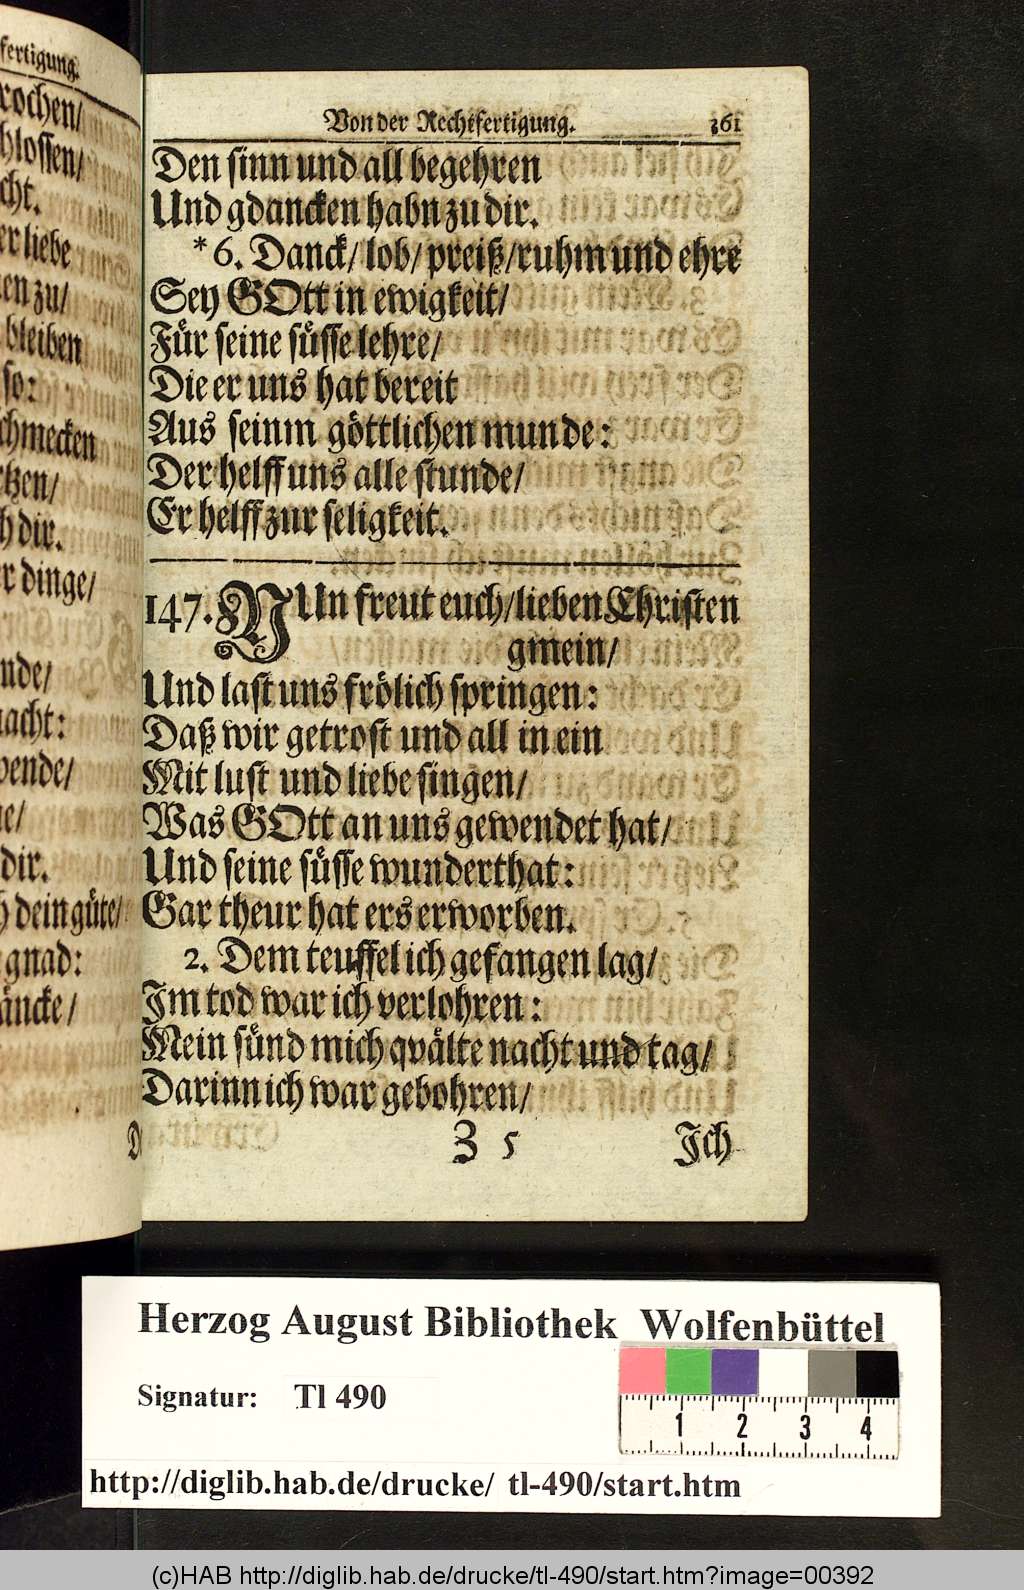 fertigung.
rochen/
hlossen/
cht.
er liebe
en zu/
bleiben
so:
chmecken
tzen/
h dir.
r dinge/
nde/
nacht:
wende/
ne/
dir.
h dein güte/
gnad:
äncke/
Von der Rechtfertigung. 361
Den sinn und all begehren
Und gdancken habn zu dir.
* 6. Danck/ lob/ preiß/ ruhm und ehre
Sey GOtt in ewigkeit/
Für seine süsse lehre/
Die er uns hat bereit
Aus seinm göttlichen munde:
Der helff uns alle stunde/
Er helff zur seligkeit.
147. NUn freut euch/ lieben Christen
gmein/
Und last uns frölich springen:
Daß wir getrost und all in ein
Mit lust und liebe singen/
Was GOtt an uns gewendet hat/
Und seine süsse wunderthat:
Gar theur hat ers erworben.
2. Dem teuffel ich gefangen lag/
Im tod war ich verlohren:
Mein sünd mich qvälte nacht und tag/
Darinn ich war gebohren/
Z 5 Ich
Herzog August Bibliothek Wolfenbüttel
Signatur: Tl 490
1 2 3 4
http://diglib.hab.de/drucke/ tl-490/start.htm
(c)HAB http://diglib.hab.de/drucke/tl-490/start.htm?image=00392